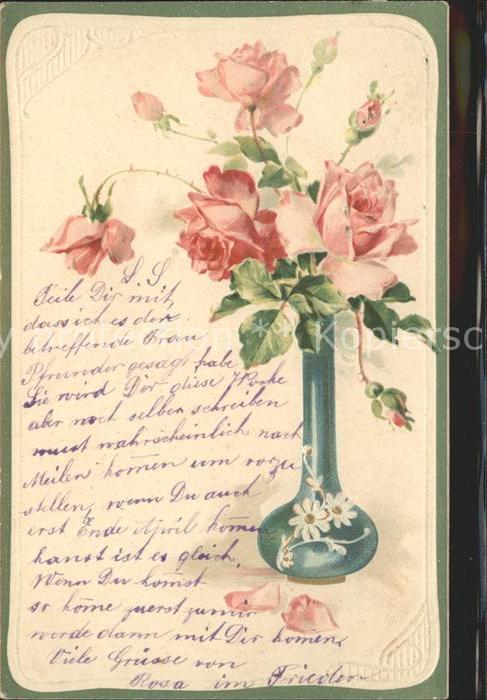 L. S.
Teile Dir mit,
dass ich es der
betreffende Frau
Pfrunder gesagt habe
Sie wird Dir diese Woche
aber noch selber schreiben
must wahrscheinlich nach
Meilen komen um vorzu
stellen, wenn Du auch
erst Ende April komen
kanst ist es gleich.
Wenn Du komst
so kome zuerst zu mir
werde dann mit Dir komen,
Viele Grüsse von
Rosa im Frieden